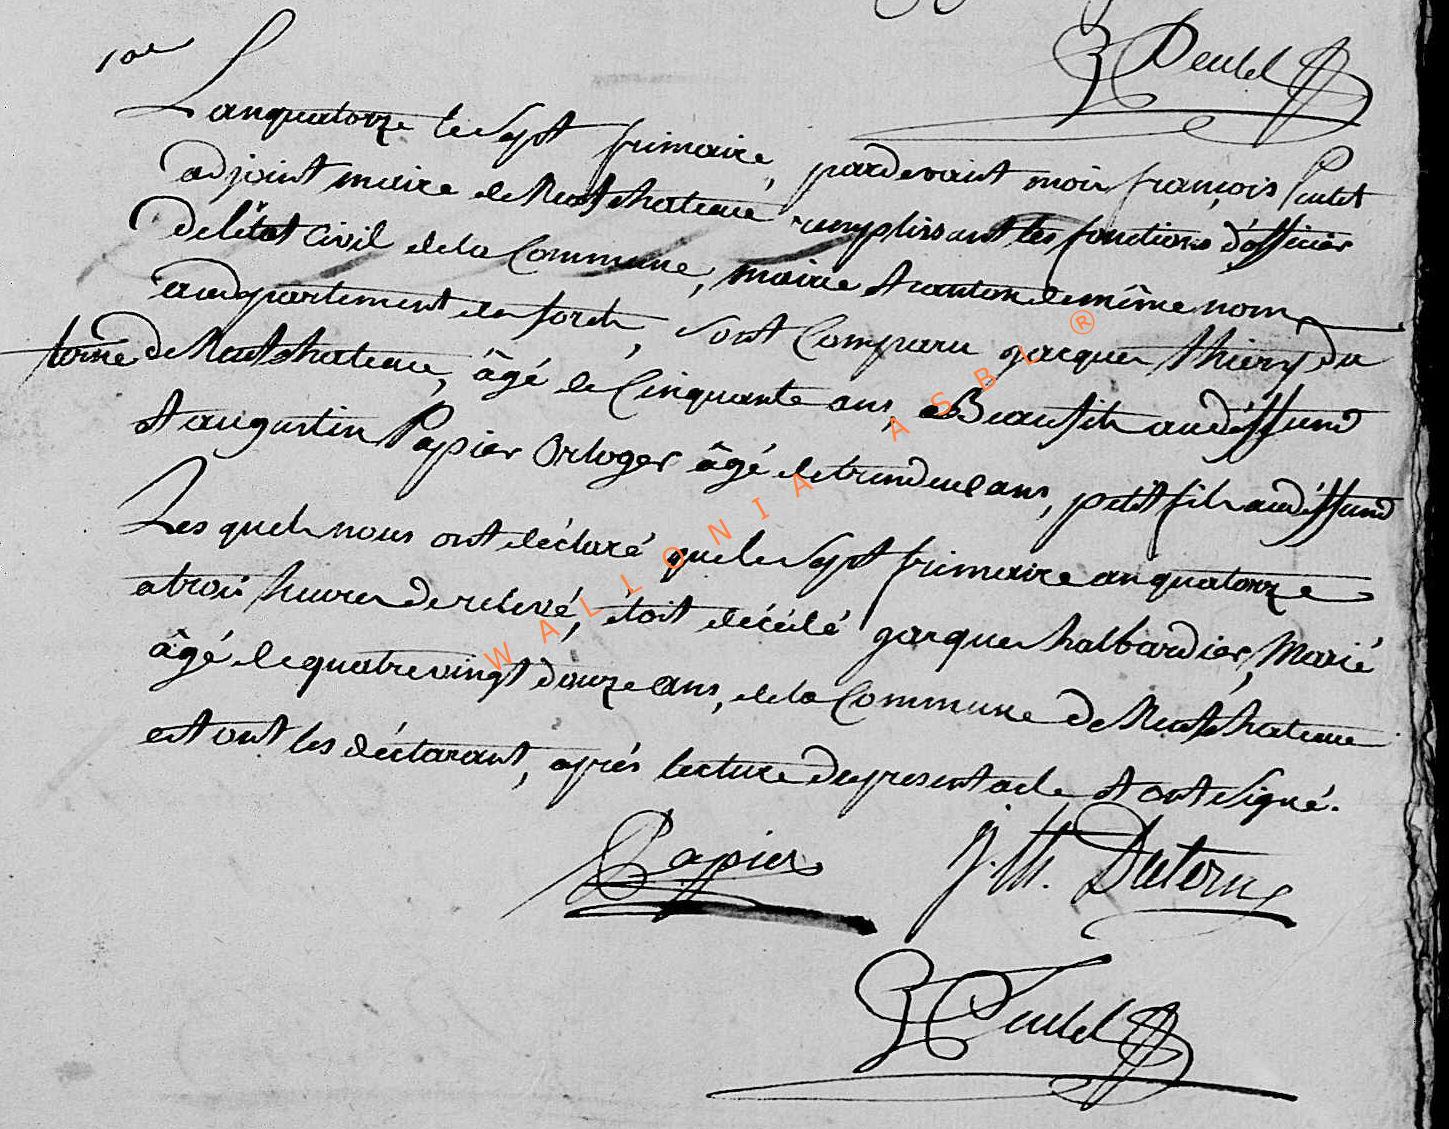 10e
Peulet
L'an quatorze le sept frimaire, pardevant moi françois Peulet
adjoint maire de Neufchateau remplissant les fonctions d'officier
de l'état Civil de la Commune, mairie et canton de même nom,
au departement des forets, sont Comparu jacques thiery du
terne de Neufchateau, âgé de Cinquante ans, Beau fils au déffund
et augustin Papier Orloger âgé de trende ans, petit fils au déffund
Les quels nous ont déclaré que le sept frimaire an quatorze
a trois heures de relevé, étoit décédé jacques halbardier, Marié
âgé de quatre vingt douze ans, de la Commune de Neufchateau
est ont les déclarant, après lecture du present acte et ont signé.
Papier
J. th. Duterne
Peulet
WALLONIA ASBL ®